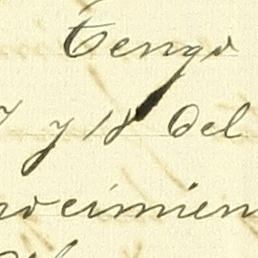 Tengo
7 y 18 del
ocimien